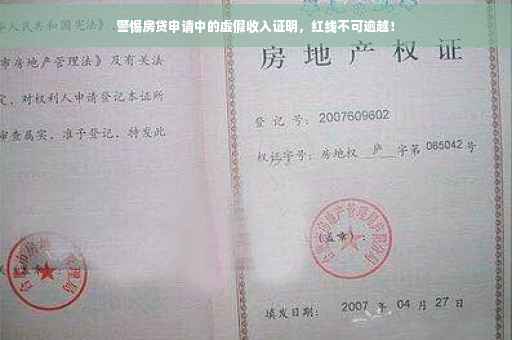 警惕房贷申请中的虚假收入证明，红线不可逾越！
人民共和国宪法》、
市房地产管理法》及有关法
定，对权利人申请登记本证所
审查属实，准予登记，特发此
房地产权证
登 记 号：2007609602
权证字号：房地权 庐 字第 065042 号
（盖章）：
填发日期： 2007 年 04 月 27 日